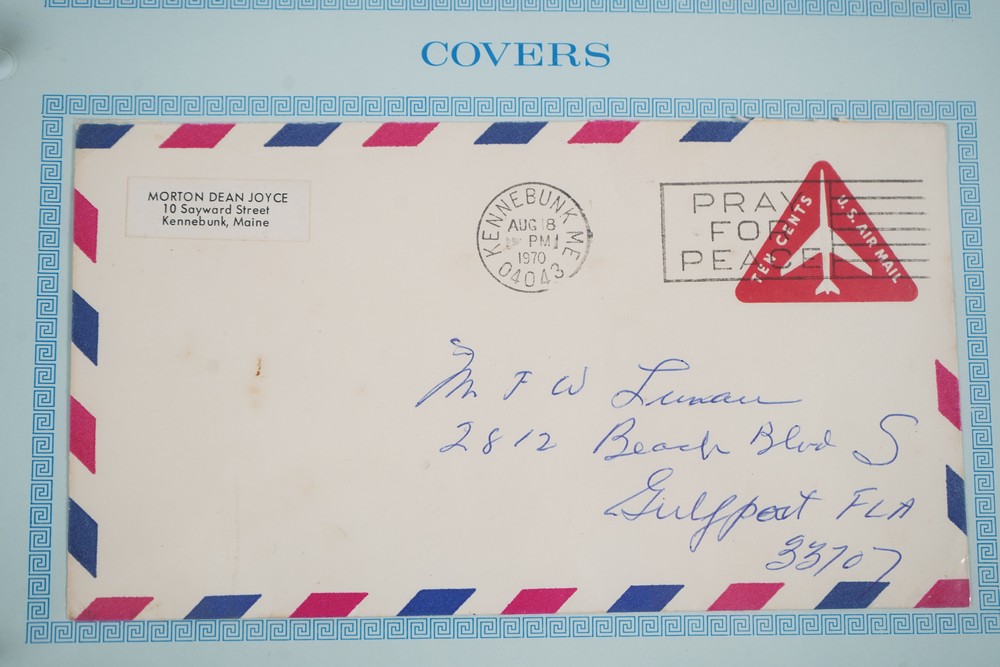 COVERS
MORTON DEAN JOYCE
10 Sayward Street
Kennebunk, Maine
KENNEBUNK ME
AUG 18
PM
1970
04043
PRAY
FOR
PEACE
TEN CENTS
U.S. AIR MAIL
M F W
2812 Beach Blvd S
Gulfport FLA
33707